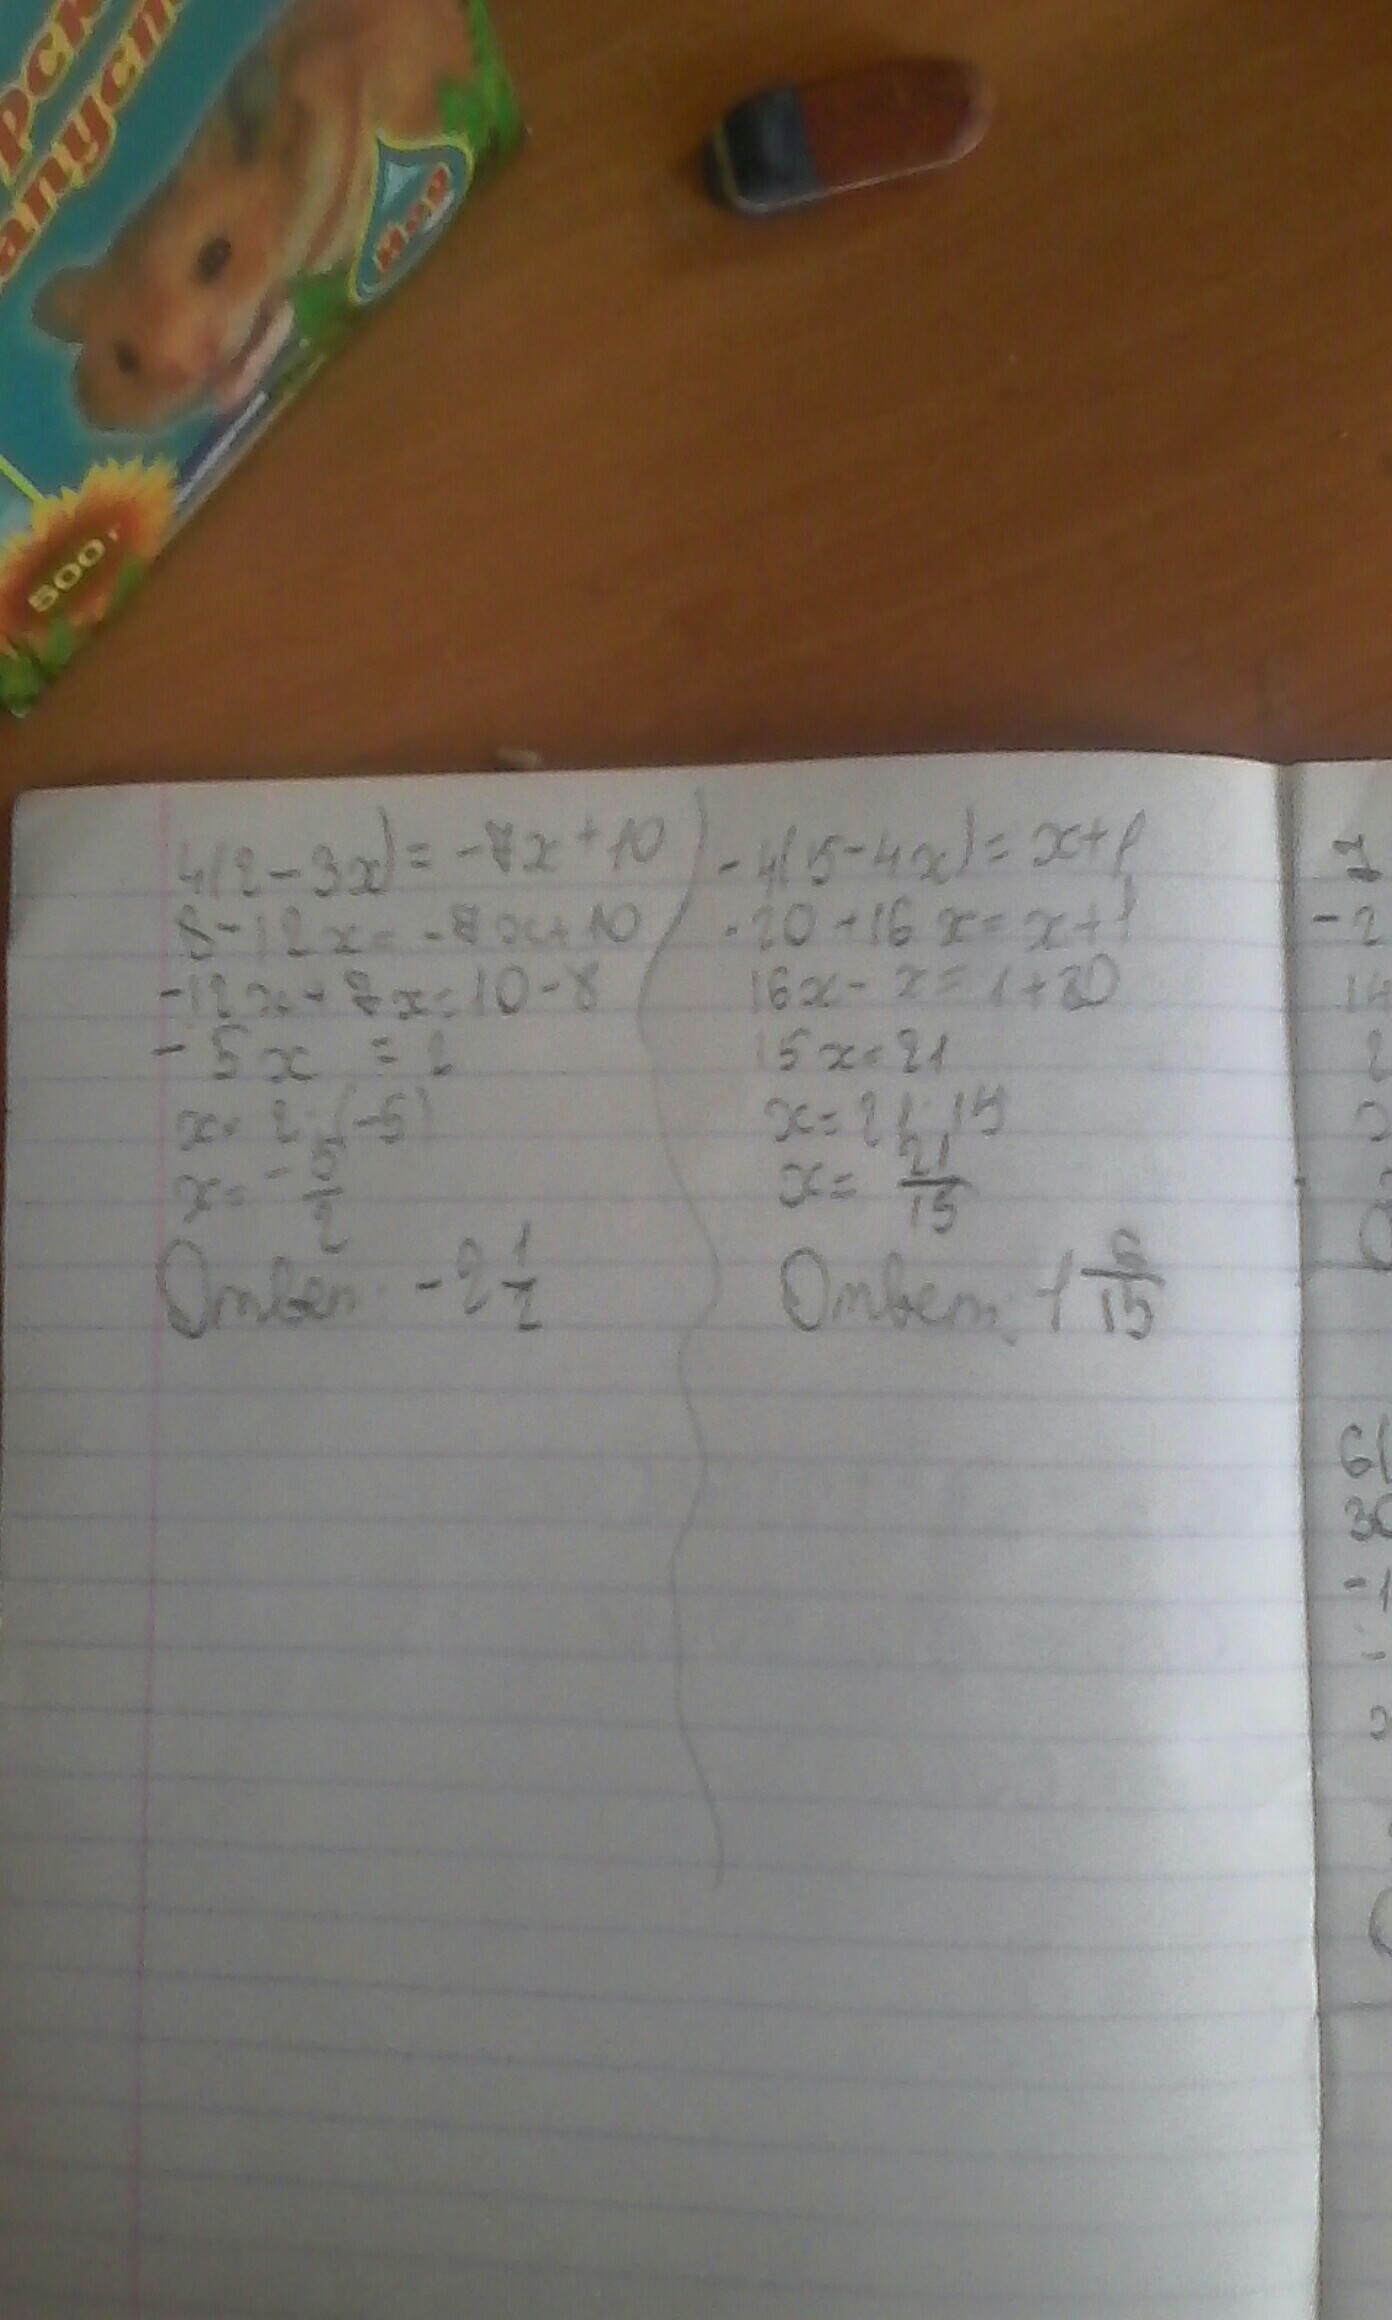 500 г
4(2-3x)=-7x+10
8-12x=-7x+10
-12x+7x=10-8
-5x =2
x=2:(-5)
x=-5/2
Ответ: -2 1/2
-4(5-4x)=x+1
-20+16x=x+1
16x-x=1+20
15x=21
x=21:15
x=21/15
Ответ: 1 6/15